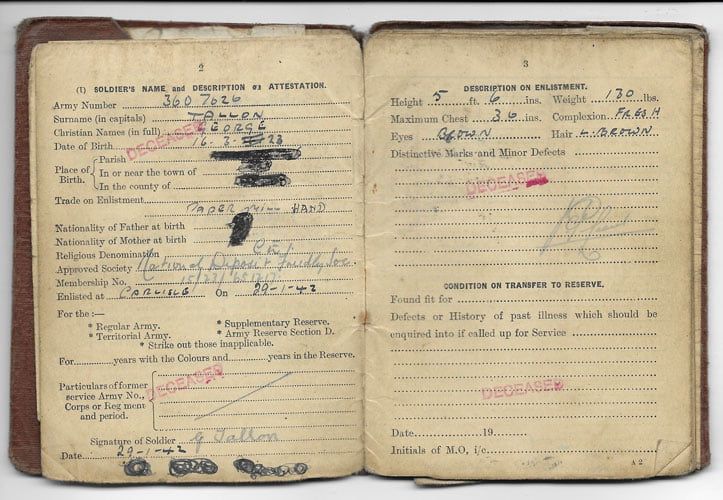 2
(I) SOLDIER'S NAME and DESCRIPTION on ATTESTATION.
Army Number 3607626
Surname (in capitals) TALLON
Christian Names (in full) GEORGE
Date of Birth 16-3-23
DECEASED
Place of Birth.
Parish
In or near the town of
In the county of
Trade on Enlistment
PAPER MILL HAND
Nationality of Father at birth
Nationality of Mother at birth
Religious Denomination C.E.
Approved Society National Deposit Friendly Soc
Membership No.
Enlisted at CARLISLE On 29-1-42
For the :—
* Regular Army. * Supplementary Reserve.
* Territorial Army. * Army Reserve Section D.
* Strike out those inapplicable.
For years with the Colours and years in the Reserve.
Particulars of former service Army No., Corps or Regiment and period.
DECEASED
Signature of Soldier G Tallon
Date 29-1-42
3
DESCRIPTION ON ENLISTMENT.
Height 5 ft. 6 ins. Weight 130 lbs.
Maximum Chest 36 ins. Complexion FRESH
Eyes BROWN Hair L. BROWN
Distinctive Marks and Minor Defects
DECEASED
CONDITION ON TRANSFER TO RESERVE.
Found fit for
Defects or History of past illness which should be
enquired into if called up for Service
DECEASED
Date 19
Initials of M.O, i/c
A 2